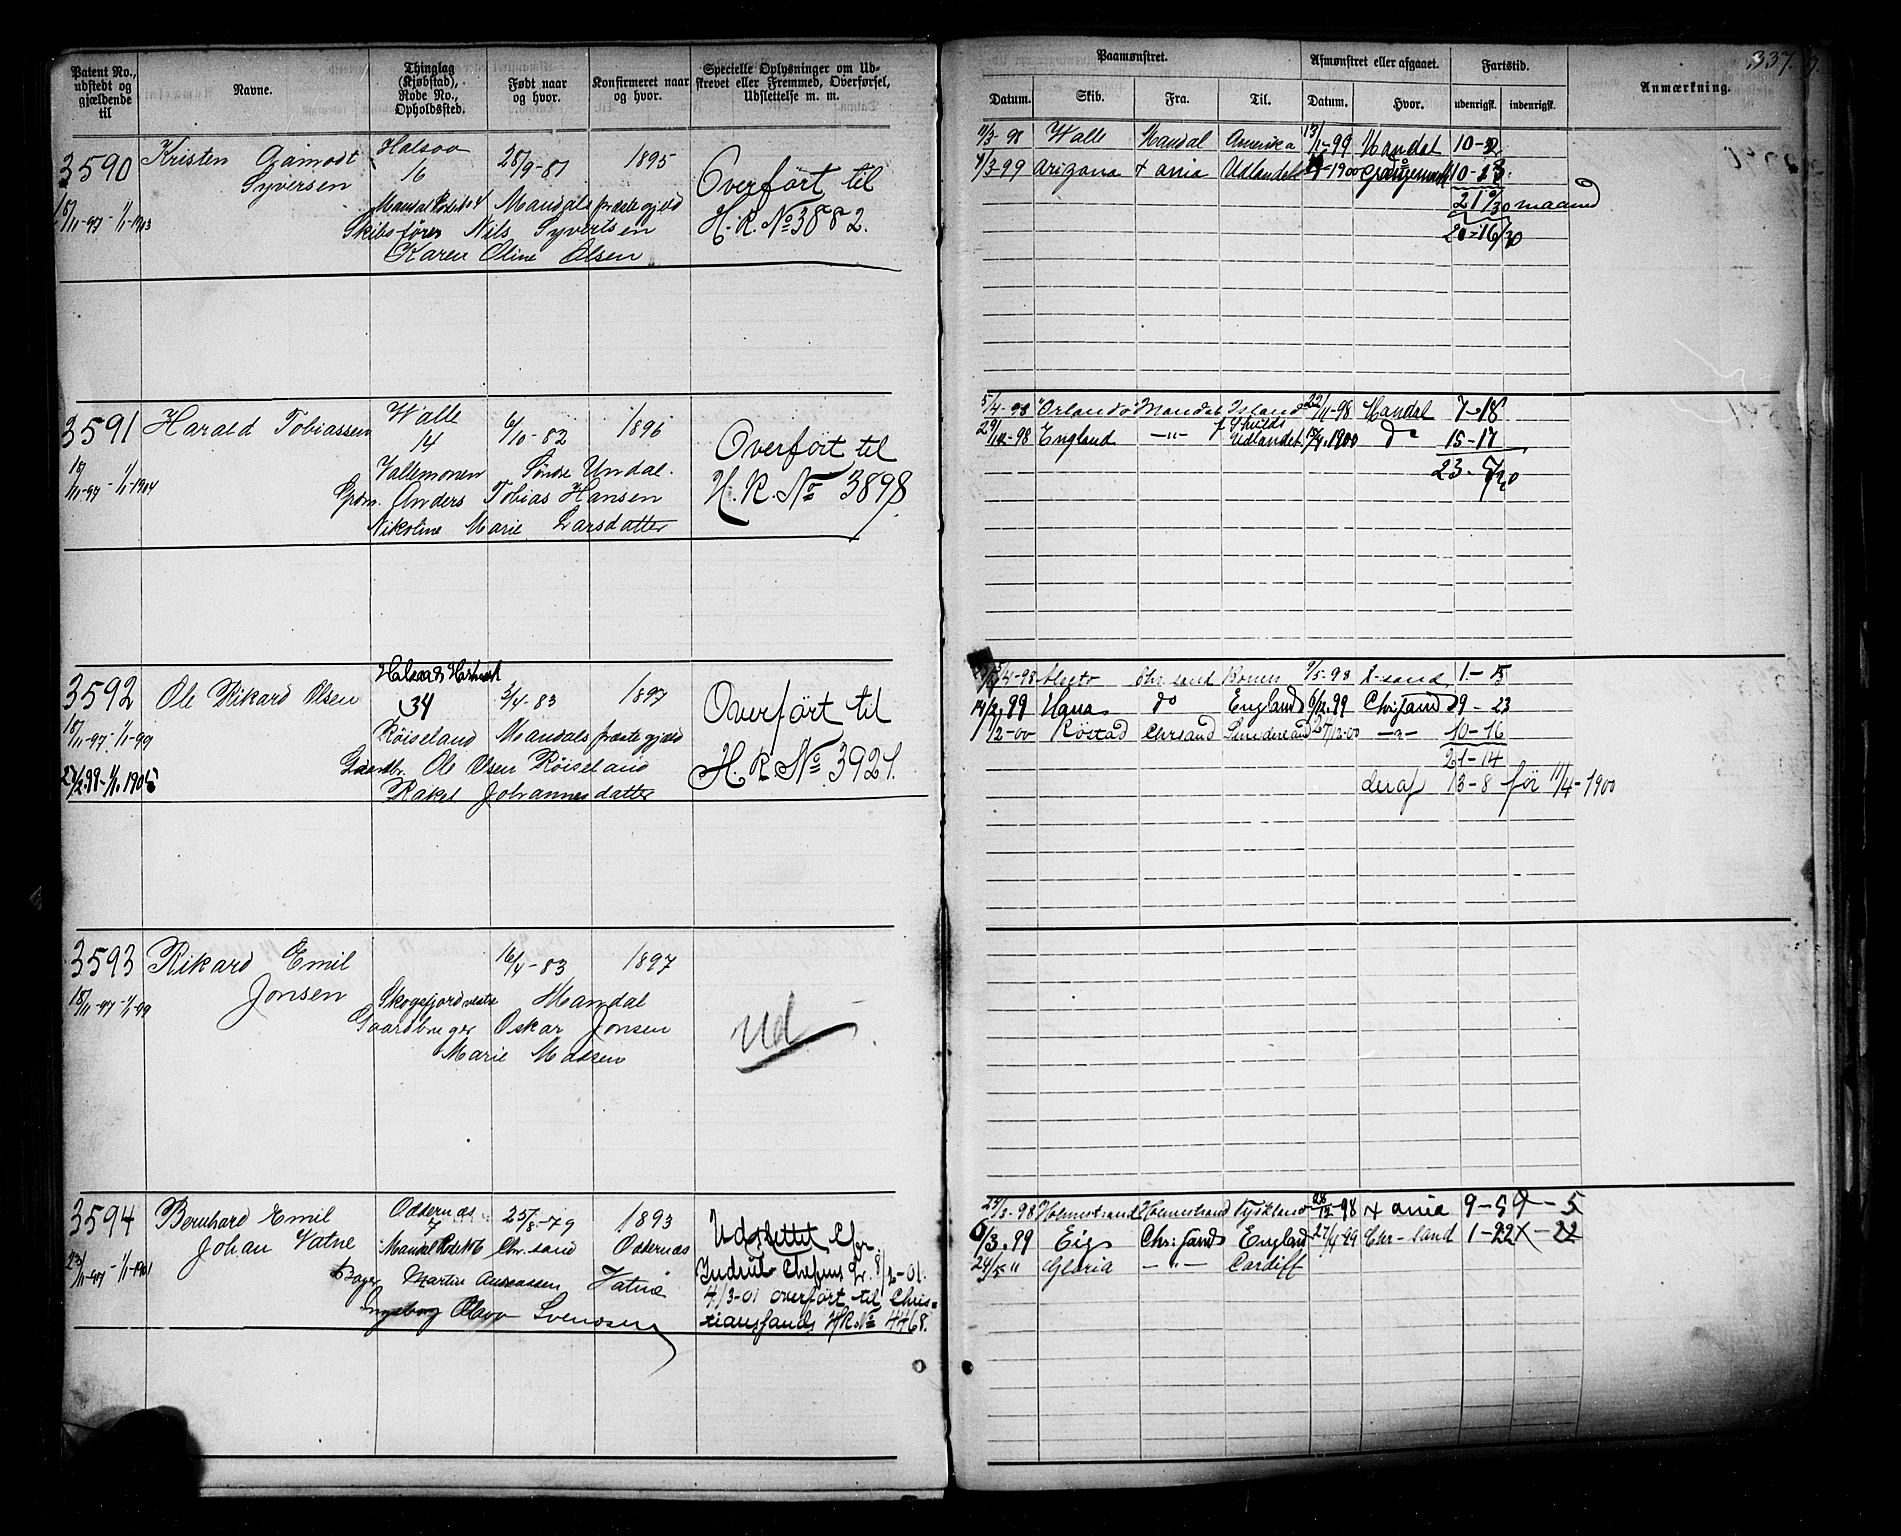 337.
Patent No., udstedt og gjældende til
Navne.
Thinglag (Kjøbstad), Rode No., Opholdssted.
Født naar og hvor.
Konfirmeret naar og hvor.
Specielle Oplysninger om Udstrevet eller Fremmed, Overførsel, Udslettelse m. m.
Paamønstret.
Afmønstret eller afgaaet.
Fartstid.
Anmærkning.
Datum. Skib. Fra. Til. Datum. Hvor. udenrigsk. indenrigsk.
3590 Kristen Syversen Halsaa 16 28/9-81 1895
18/11-97 - 1/1-1903
Mandals præstegjeld
Skibsfører Nils Syvertsen
Karen Oline Olsen
Overført til
H. R. No 3882.
11/3-98 Walle Mandal Amerika 13/1-99 Mandal
Arizona + ania Udlandet 1900 10-23
maaned
20-16/30
3591 Harald Tobiassen Walle 14 6/10-82 1896
18/11-97 - 1/1-1904
Vallemonen Søndre Undal.
Anders Tobias Hansen
Nikoline Marie Larsdatter
Overført til
H. R. No 3898
5/4-98 "Orlando" Mandal Island 22/11-98 Mandal 7-18
29/12-98 England -"- Udlandet 1900 do 15-17
23-5/30
3592 Ole Rikard Olsen 34 5/4-83 1897
18/11-97 - 1/1-99
1905
Røiseland Mandals præstegjeld
Gaardbr. Ole Olsen Røiseland
Rakel Johannesdatter
Overført til
H. R. No 3921.
4-98 Alecto Chr.sand 9/5-98 X-sand 1-5
14/2.99 Hana do England 6/12.99 Chr.sand 9-23
1/2-00 Røstad Chrsand Sunderland 27/12-00 -"- 10-16
21-14
deraf 13-8 før 11/4-1900
3593 Rikard Emil Jonsen 16/4-83 1897
18/11-97 - 1/1-99
Skogsfjord vestre Mandal
Gaardbruger Oskar Jonsen
Marie Madsen
Ud
3594 Bernhard Emil Johan Vatne Oddernæs 7 25/8-79 1893
23/11-97 - 1/1-1901
Chr.sand Oddernæs
Bager Martin Andreassen Vatne
Ingeborg Olava Svendsen
Udslettet efr.
Indrul. Chefens Skr. 8/2-01.
4/3-01 overført til Chris=
tianssands HR. No 4468.
Holmestrand Holmestrand Tyskland 28/12-98 + ania 9-5
6/3.99 Eigs Chr.sand England 27/4-99 Chr-sand 1-22
24/5 " Gloria -"- Cardiff